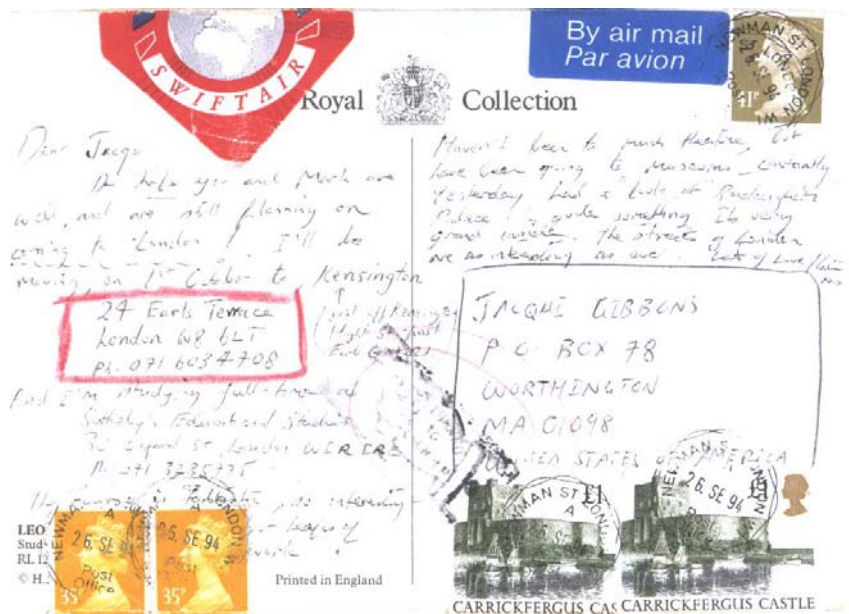 SWIFTAIR
Royal Collection
By air mail
Par avion
41P
NEWMAN ST. LONDON W1
26 SE 94
Dear Jacqui
I hope you and Mark are
well, and are still planning on
coming to London! I'll be
moving on 1st October to Kensington
24 Earls Terrace
London W8 6LT
Ph. 071 6034708
just off Kensington
High St, past
And I'm studying full-time at
Sotheby's Educational Studies
30 Oxford St, London W1R 1RE
Ph. 071 3235775
The course is fantastic, so interesting
Haven't been to much theatre, but
have been going to museums constantly
Yesterday, had a look at Buckingham
Palace - quite something. It's very
Grand inside. The streets of London
are as interesting as ever. Lots of Love
JACQUI GIBBONS
P.O. BOX 78
WORTHINGTON
MA 01098
UNITED STATES OF AMERICA
NEWMAN ST. LONDON W
A
26. SE 94
Post
Office
35P
35P
NEWMAN ST. LONDON
A
26. SE 94
£1
£1
CARRICKFERGUS CAS
CARRICKFERGUS CASTLE
LEO
Stud
RL 12
© H.
Printed in England